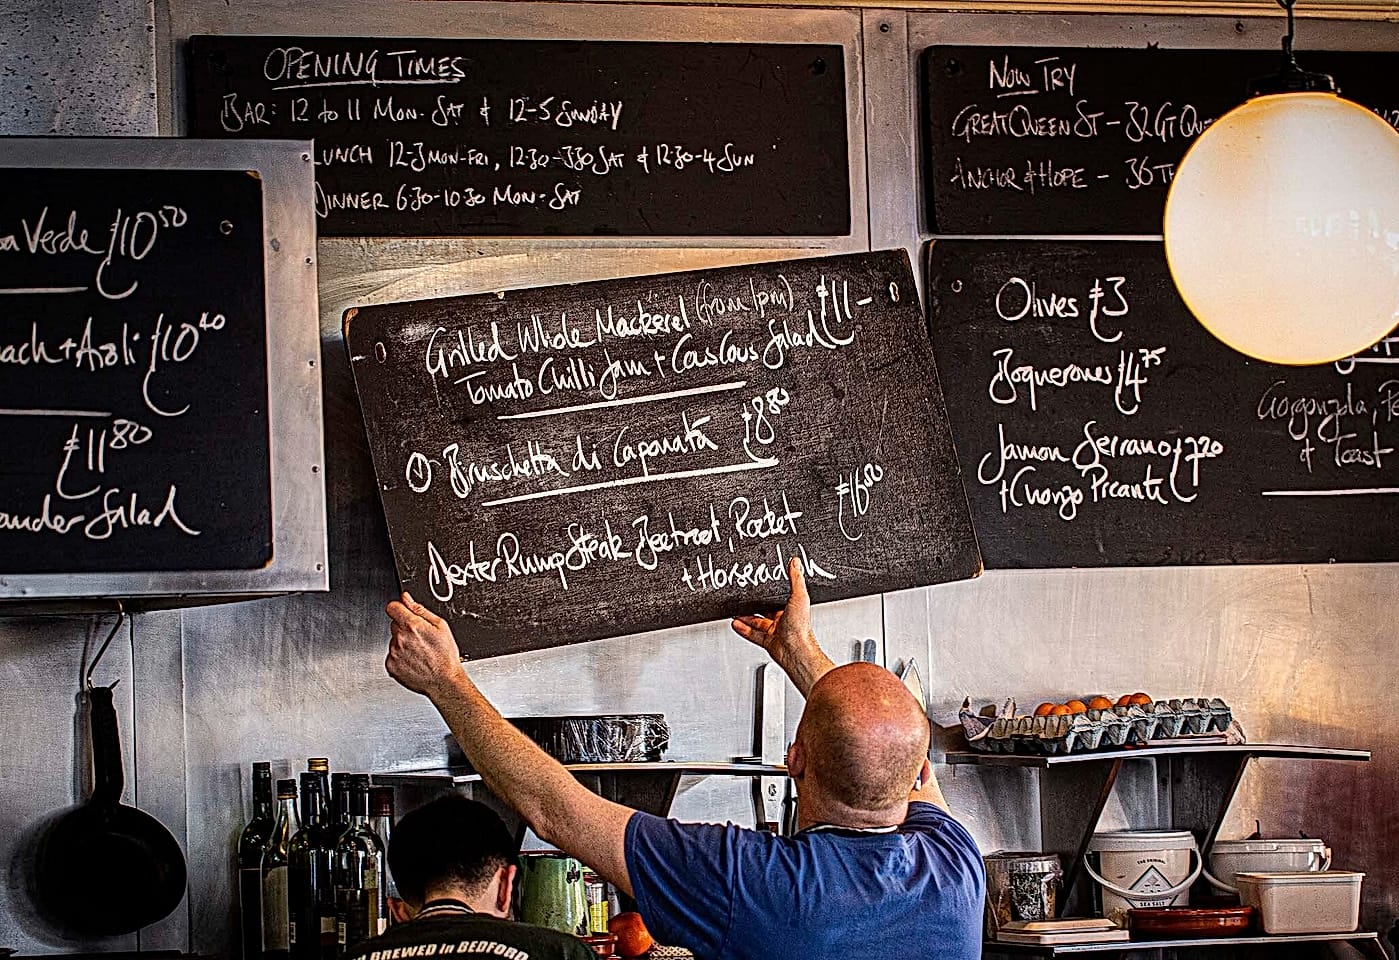 OPENING TIMES
BAR: 12 to 11 MON-SAT & 12-5 SUNDAY
LUNCH 12-3 MON-FRI, 12:30-3:30 SAT & 12:30-4 SUN
DINNER 6:30-10:30 MON-SAT
NOW TRY
GREAT QUEEN ST - 32 GT QUE
ANCHOR & HOPE - 36 TH
Verde £10 50
+ Aioli £10 40
£11 80
Salad
Grilled Whole Mackerel (from 1pm) £11-
Tomato Chilli Jam + CousCous Salad
V Bruschetta di Caponata £8 80
Dexter Rump Steak Beetroot, Rocket £16 80
+ Horseradish
Olives £3
Boquerones £4 75
Jamon Serrano £7 20
+ Chorizo Picante
Gorgonzola,
+ Toast
BREWED in BEDFORD
THE ORIGINAL
SEA SALT